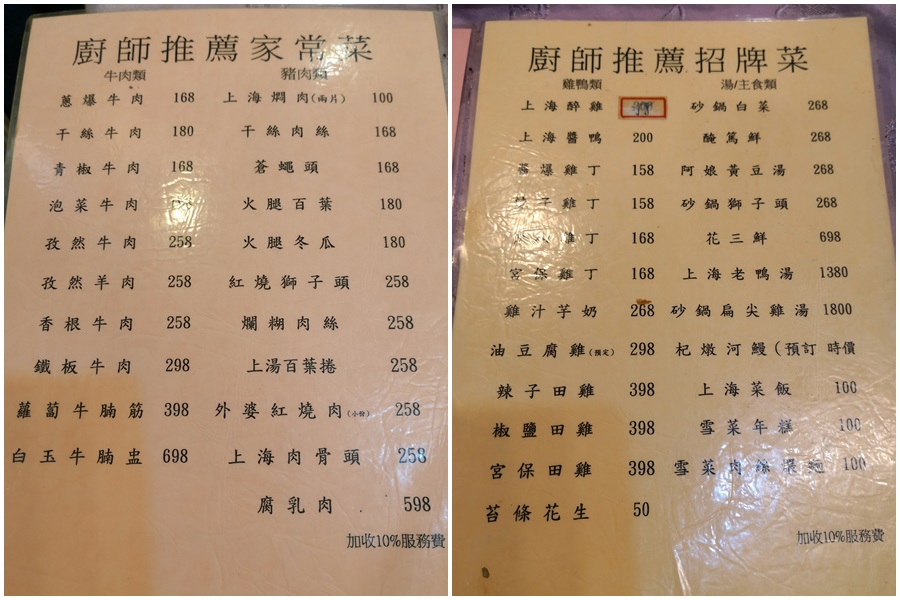 廚師推薦家常菜
牛肉類 豬肉類
蔥爆牛肉 168 上海焖肉(兩片) 100
干絲牛肉 180 干絲肉絲 168
青椒牛肉 168 蒼蠅頭 168
泡菜牛肉 火腿百葉 180
孜然牛肉 258 火腿冬瓜 180
孜然羊肉 258 紅燒獅子頭 258
香根牛肉 258 爛糊肉絲 258
鐵板牛肉 298 上湯百葉捲 258
蘿蔔牛腩筋 398 外婆紅燒肉 258
白玉牛腩盅 698 上海肉骨頭 258
腐乳肉 598
加收10%服務費
廚師推薦招牌菜
雞鴨類 湯/主食類
上海醉雞 砂鍋白菜 268
上海醬鴨 200 醃篤鮮 268
爆雞丁 158 阿娘黃豆湯 268
子雞丁 158 砂鍋獅子頭 268
雞丁 168 花三鮮 698
宮保雞丁 168 上海老鴨湯 1380
雞汁芋奶 268 砂鍋扁尖雞湯 1800
油豆腐雞(預定) 298 杞燉河鰻(預訂 時價
辣子田雞 398 上海菜飯 100
椒鹽田雞 398 雪菜年糕 100
宮保田雞 398 雪菜肉絲 100
苔條花生 50
加收10%服務費